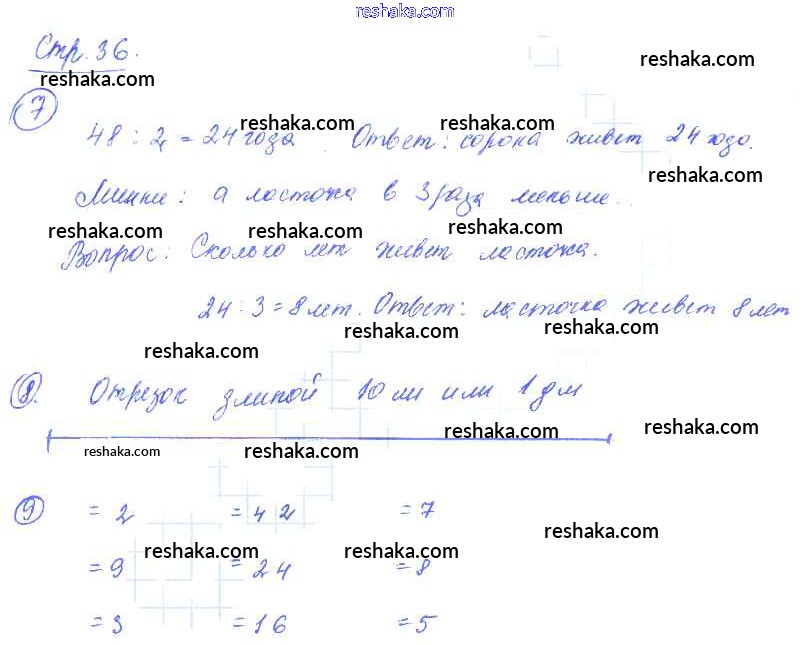 reshaka.com
Стр. 36.
reshaka.com
reshaka.com
7
reshaka.com reshaka.com
48 : 2 = 24 года. Ответ: сорока живет 24 года.
reshaka.com
а ласточка в 3 раза меньше..
reshaka.com reshaka.com reshaka.com
Вопрос: Сколько лет живет ласточка.
24 : 3 = 8 лет. Ответ: ласточка живет 8 лет
reshaka.com reshaka.com reshaka.com
8. Отрезок длиной 10 см или 1 дм
reshaka.com reshaka.com
reshaka.com reshaka.com
9 = 2 = 42 = 7
reshaka.com
reshaka.com reshaka.com
= 9 = 24 = 8
= 3 = 16 = 5
reshaka.com reshaka.com reshaka.com